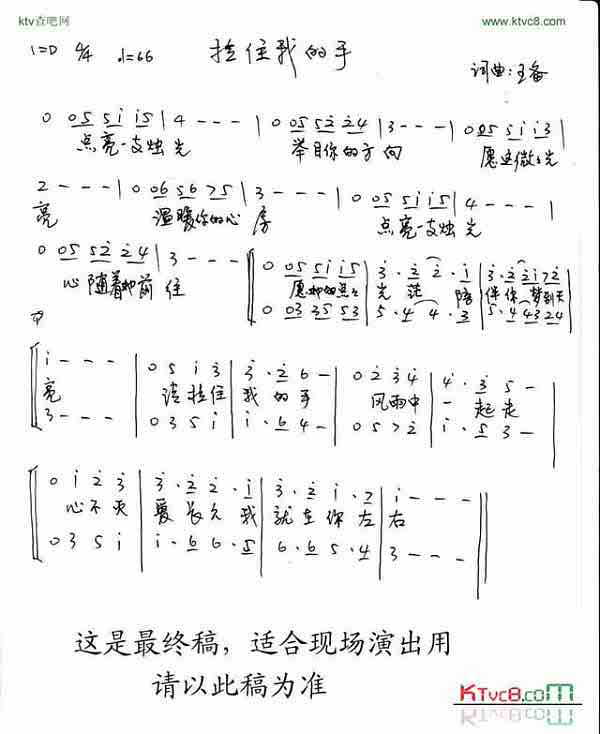 ktv查吧网 www.ktvc8.com
1=D 4/4 ♩=66 拉住我的手
词曲:王备
0 05 51 15 | 4 - - - | 0 05 52 24 | 3 - - - | 0 05 51 13 |
点亮一支烛光 举目你的方向 愿这微光
2 - - - | 0 06 56 75 | 3 - - - | 0 05 51 15 | 4 - - - |
亮 温暖你的心房 点亮一支烛光
0 05 52 24 | 3 - - - | 0 05 51 15 | 3·2 2·1 | 3·2 21 72
心随着 前往 愿 点点 光茫 陪 伴你 梦到天
0 03 35 53 | 5·4 4·3 | 5·4 43 24
1 - - - | 0 5 1 3 | 3·2 6 - | 0 2 3 4 | 4·3 5 -
亮 请拉住 我的手 风雨中 一起走
3 - - - | 0 3 5 1 | 1·6 4 - | 0 5 7 2 | 1·5 3 -
0 1 2 3 | 3·2 2·1 | 3·2 1·7 | 1 - - -
心不灭 爱长久 我 就在你左右
0 3 5 1 | 1·6 6·5 | 6·6 5·4 | 3 - - -
这是最终稿，适合现场演出用
请以此稿为准
KTvc8.com